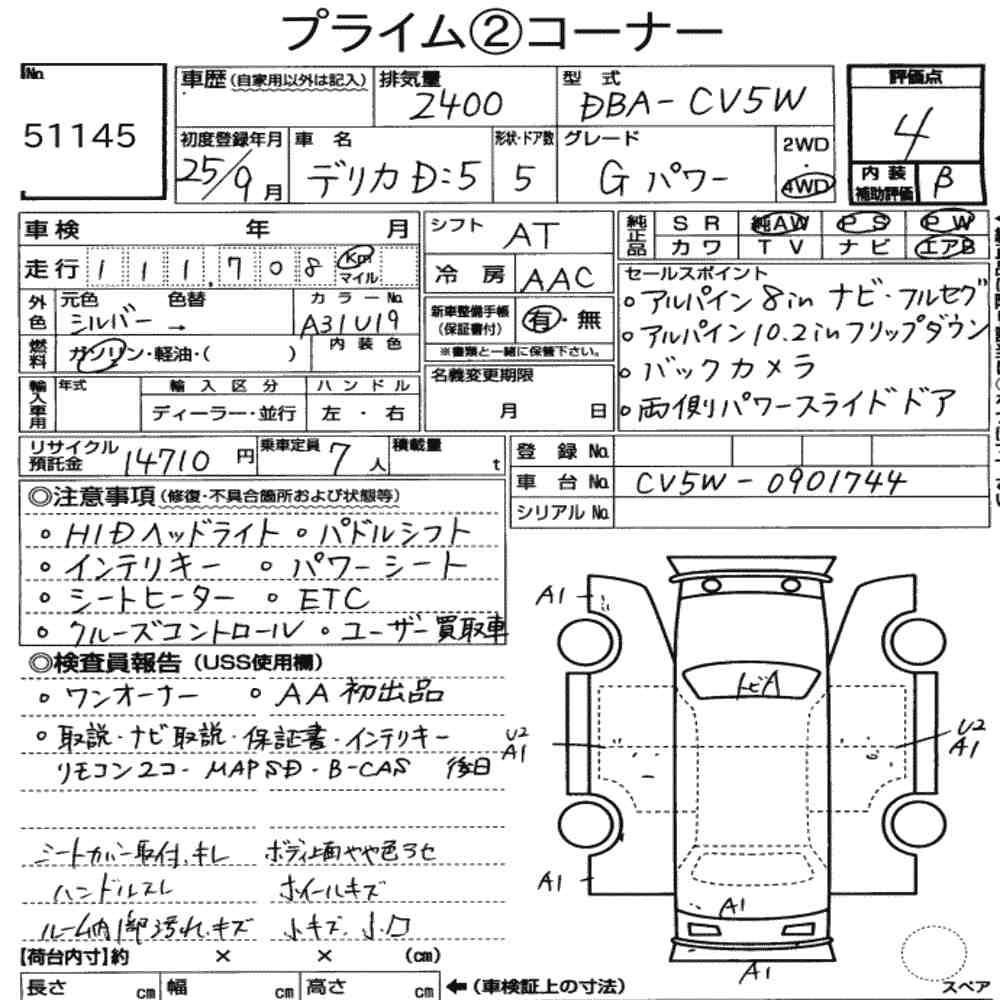 プライム②コーナー
No. 51145
車歴(自家用以外は記入) 排気量 2400 型式 DBA-CV5W
初度登録年月 25/9月 車名 デリカD:5 形状・ドア数 5 グレード Gパワー 2WD・4WD
評価点 4
内装補助評価 B
車検 年 月
走行 111,708 Km マイル
外色 元色 シルバー → 色替 カラーNo. A31U19
燃料 ガソリン・軽油・( ) 内装色
輸入車用 年式 輸入区分 ディーラー・並行 ハンドル 左・右
シフト AT
冷房 AAC
新車整備手帳(保証書付) 有・無
※書類と一緒に保管下さい。
名義変更期限 月 日
純正品 SR 純AW PS PW
カワ TV ナビ エアB
セールスポイント
○アルパイン8inナビ・フルセグ
○アルパイン10.2inフリップダウン
○バックカメラ
○両側パワースライドドア
リサイクル預託金 14710円 乗車定員 7人 積載量 t
登録No.
車台No. CV5W-0901744
シリアルNo.
◎注意事項(修復・不具合箇所および状態等)
○HIDヘッドライト ○パドルシフト
○インテリキー ○パワーシート
○シートヒーター ○ETC
○クルーズコントロール ○ユーザー買取車
◎検査員報告(USS使用欄)
○ワンオーナー ○AA初出品
○取説・ナビ取説・保証書・インテリキー
リモコン2コ・MAPSD・B-CAS 後日
シートカバー取付、キレ ボディ上面やや色アセ
ハンドルスレ ホイールキズ
ルーム内1部汚れ、キズ 小キズ、小凹
【荷台内寸】約 × × (cm)
長さ cm 幅 cm 高さ cm ←(車検証上の寸法)
A1
トビA
U2
A1
U2
A1
A1
A1
A1
スペア